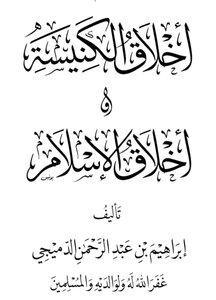 أَخْلَاقُ الْكَنِيسَةِ
وَ
أَخْلَاقُ الْإِسْلَامِ
تَأْلِيفُ
إِبْرَاهِيمَ بْنِ عَبْدِ الرَّحْمَنِ الدُّمَيْجِيِّ
غَفَرَ اللهُ لَهُ وَلِوَالِدَيْهِ وَالْمُسْلِمِينَ